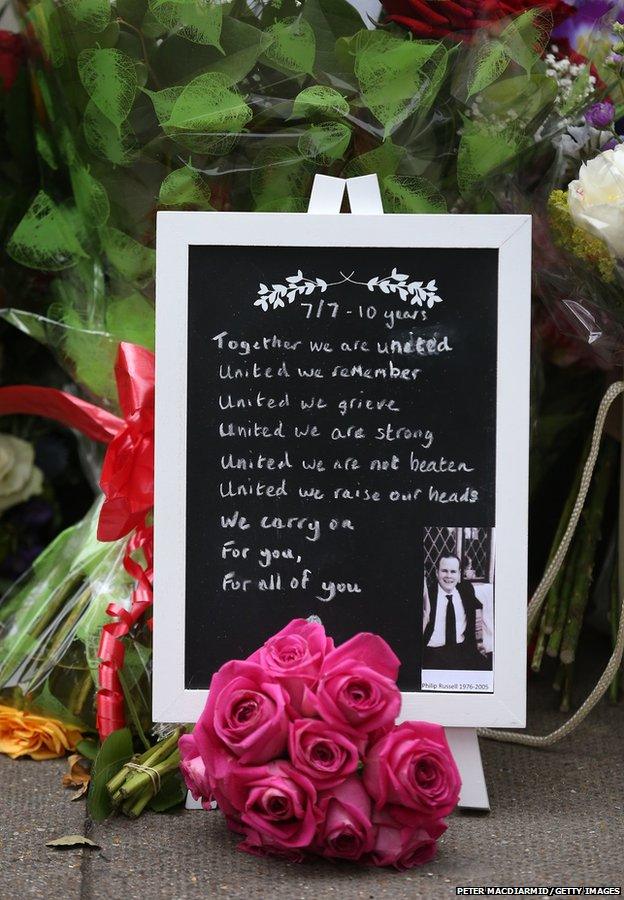 7/7 - 10 years
Together we are united
United we remember
United we grieve
United we are strong
United we are not beaten
United we raise our heads
We carry on
For you,
For all of you
Philip Russell 1976-2005
PETER MACDIARMID/GETTY IMAGES